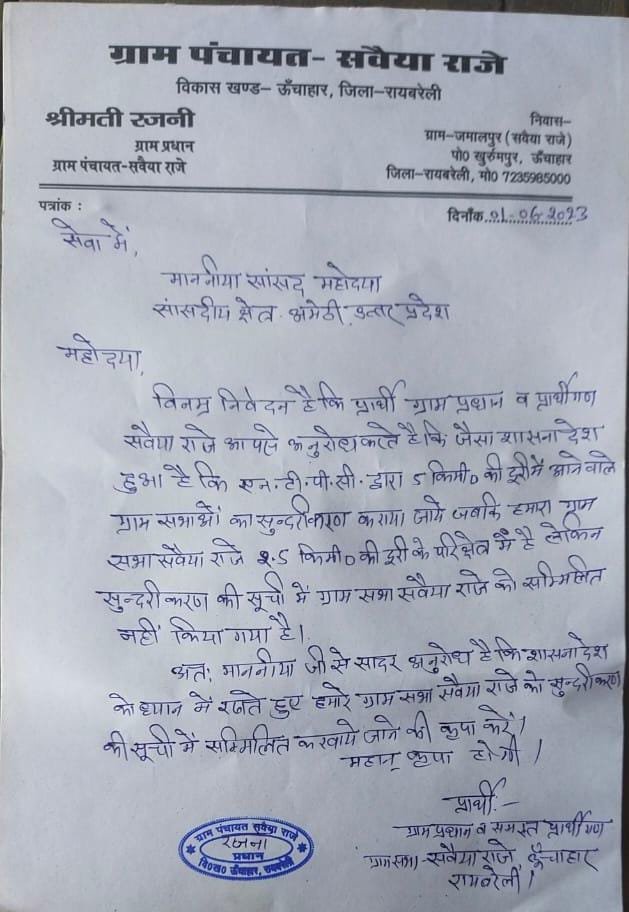 ग्राम पंचायत- सवैया राजे
विकास खण्ड– ऊँचाहार, जिला–रायबरेली
श्रीमती रजनी
ग्राम प्रधान
ग्राम पंचायत-सवैया राजे
निवास–
ग्राम-जमालपुर (सवैया राजे)
पो0 खुर्रुमपुर, ऊँचाहार
जिला–रायबरेली, मो0 7235985000
पत्रांक :
दिनाँक 01-06-2023
सेवा में,
माननीया सांसद महोदया
सांसदीय क्षेत्र. अमेठी, उत्तर प्रदेश
महोदया,
विनम्र निवेदन है कि प्रार्थी ग्राम प्रधान व प्रार्थीगण
सवैया राजे आपसे अनुरोध करते है कि जैसा शासनादेश
हुआ है कि एन.टी.पी.सी. द्वारा 5 किमी0 की दूरी में आने वाले
ग्राम सभाओं का सुन्दरीकरण कराया जाये जबकि हमारा ग्राम
सभा सवैया राजे 2.5 किमी0 की दूरी के परिक्षेत्र में है लेकिन
सुन्दरीकरण की सूची में ग्राम सभा सवैया राजे को सम्मिलित
नहीं किया गया है।
अतः माननीया जी से सादर अनुरोध है कि शासनादेश
को ध्यान में रखते हुए हमारे ग्राम सभा सवैया राजे को सुन्दरीकरण
की सूची में सम्मिलित करवाये जाने की कृपा करें।
महान् कृपा होगी।
प्रार्थी:-
ग्राम प्रधान व समस्त प्रार्थीगण
ग्राम सभा-सवैया राजे, ऊँचाहार
रायबरेली।
ग्राम पंचायत सवैया राजे
रजनी
प्रधान
वि0ख0 ऊँचाहार, रायबरेली